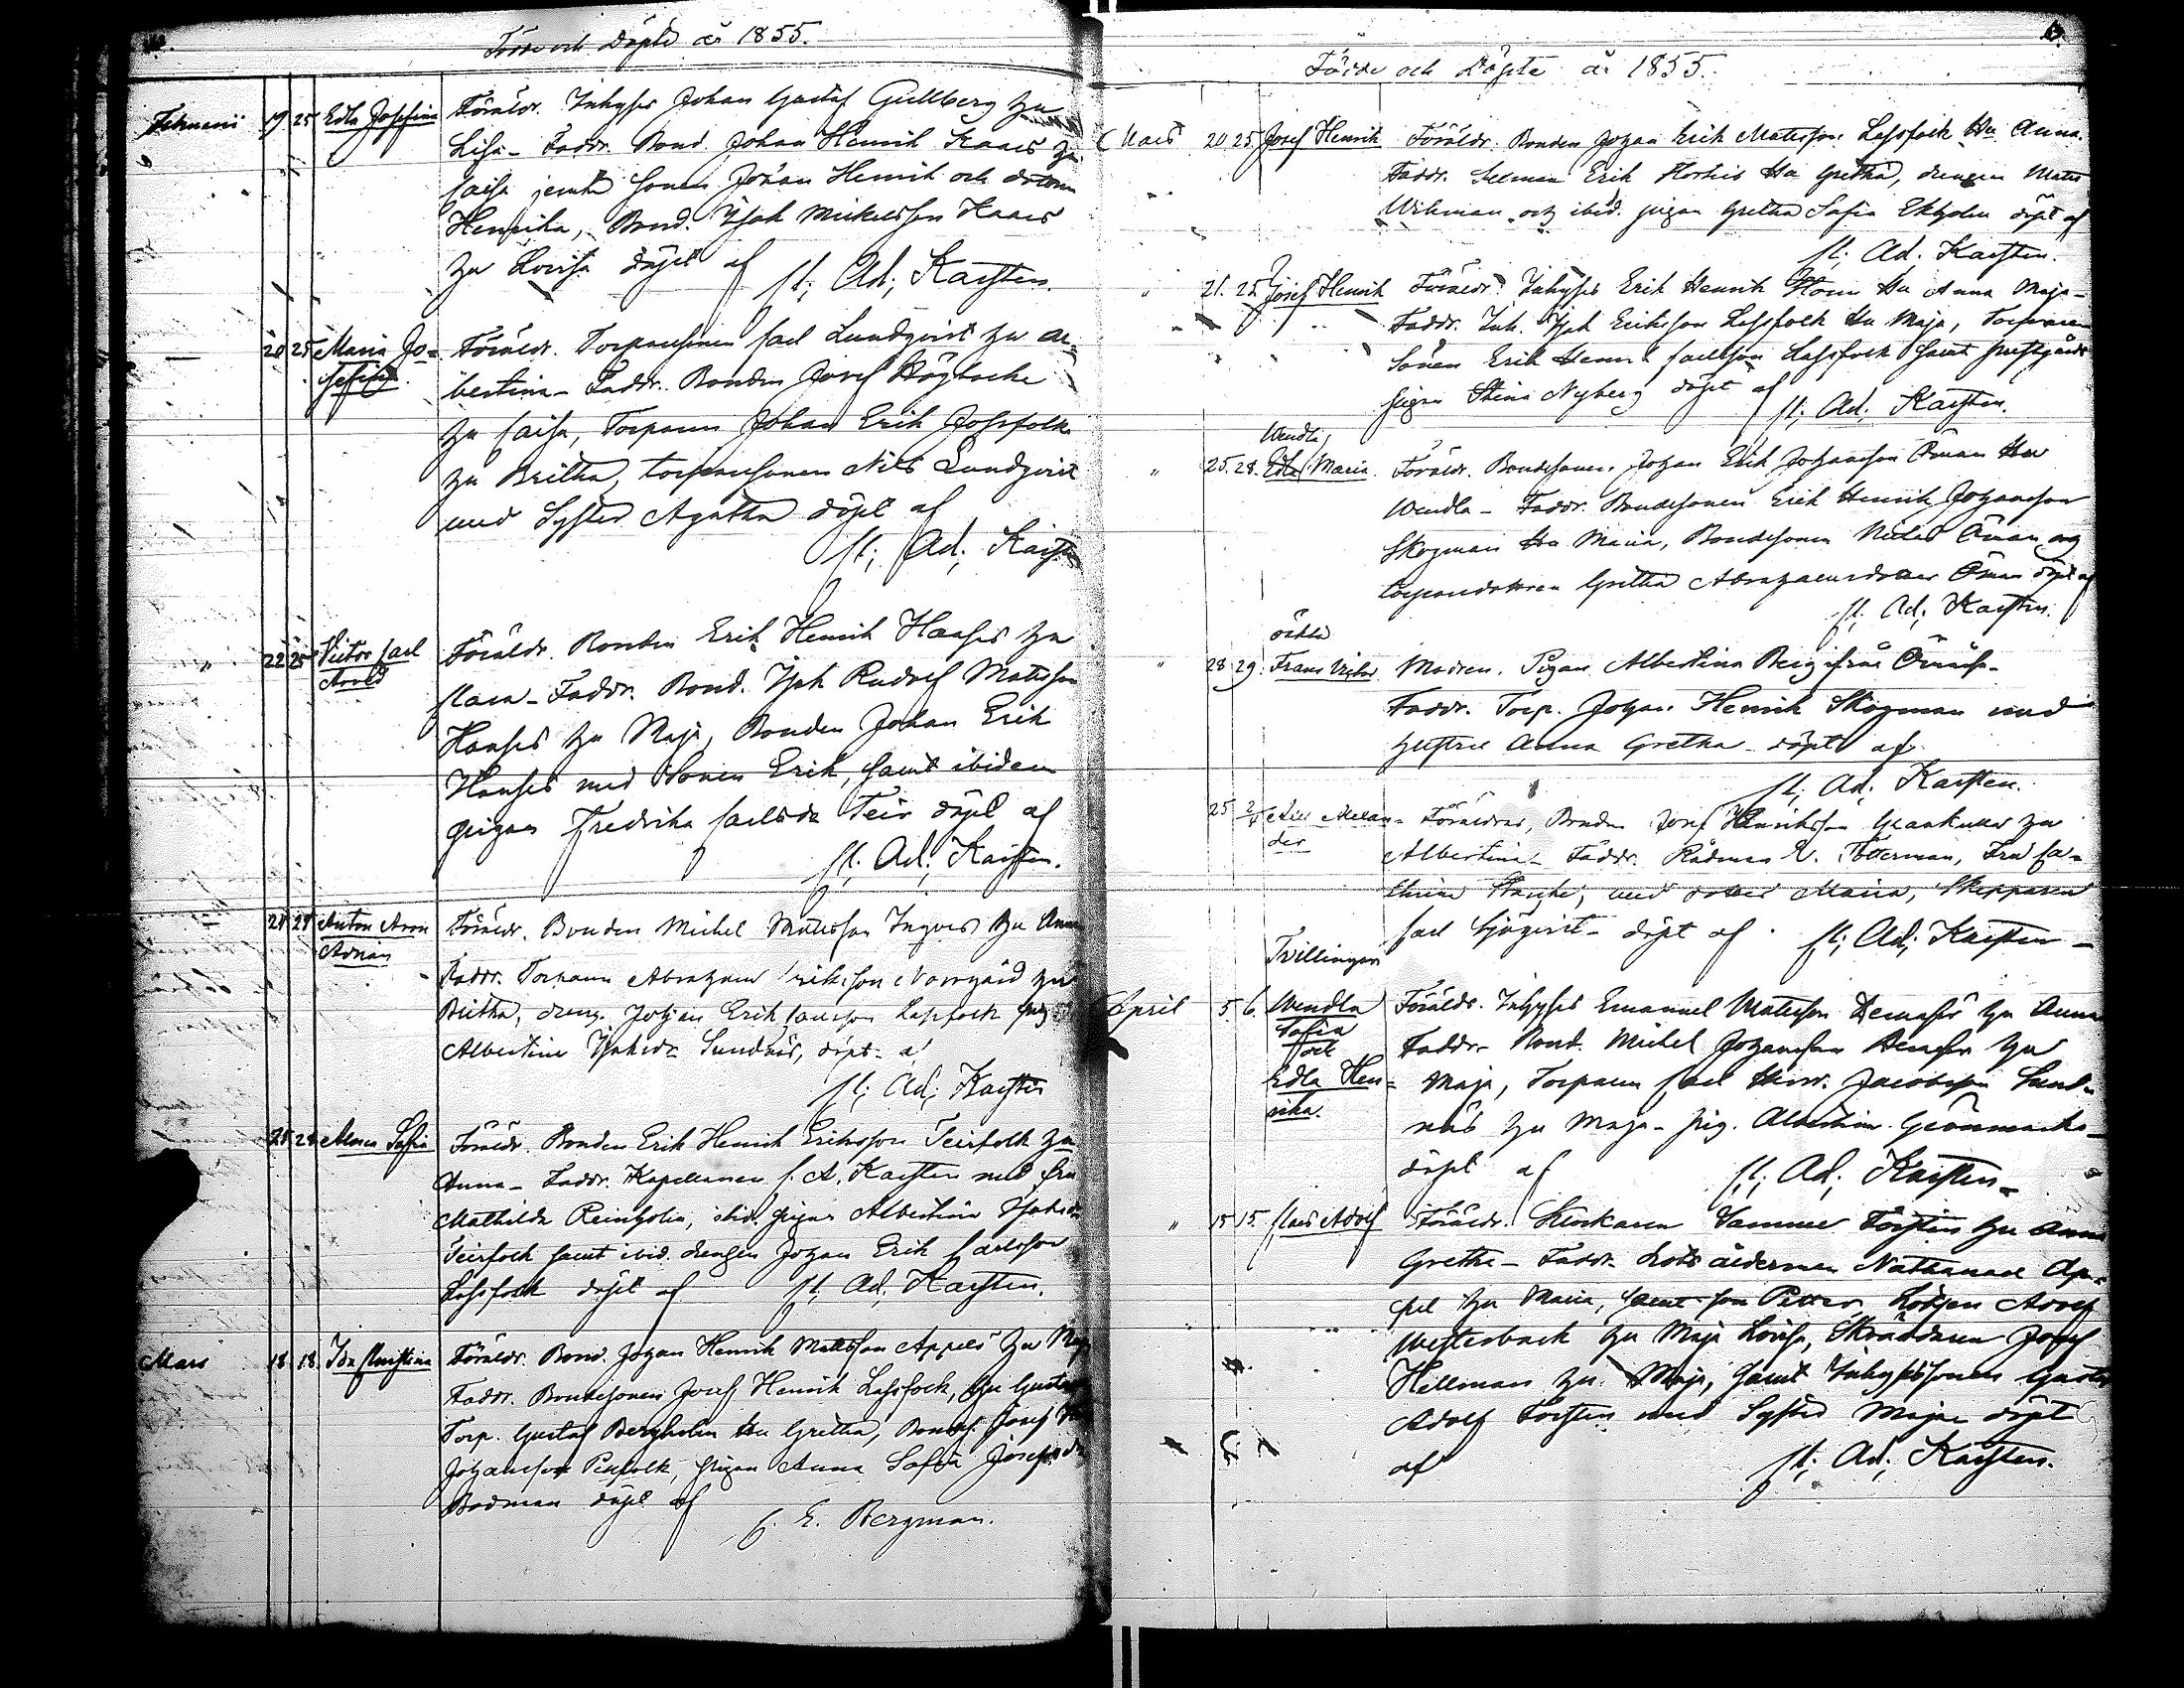 Födde och Döpte år 1855.
Februarii 19 25 Edla Josefina Föräldr. Inhyses Johan Gustaf Gullberg hu
Lisa - Faddr. Bond. Johan Henrik Kaars hu
Caisa jemte sonen Johan Henrik och dottern
Henrika, Bond. Isak Mickelsson Kaars
hu Lovisa döpt af Cl; Ad; Karsten.
20 25 Maria Jo-
sefina. Föräldr. Torparesonen Carl Lundqvist hu Al-
bertina - Faddr. Bonden Josef Högbacka
hu Caisa, Torparen Johan Erik Jossfolk
hu Britha, torparesonen Nils Lundqvist
med Syster Agatha döpt af
Cl; Ad; Karsten
" 22 25 Victor Carl
Arvid Föräldr. Bonden Erik Henrik Hanses hu
Clara - Faddr. Bond. Isak Rudolf Matsson
Hanses hu Maja, Bonden Johan Erik
Hanses med Sonen Erik, samt ibidem
pigan Fredrika Carlsdr Teir döpt af
Cl; Ad; Karsten.
24 28 Anton Aron
Adrian Föräldr. Bonden Michel Matsson Ingves hu Anna
Faddr. Torparen Abraham Eriksson Norrgård hu
Britha, dreng. Johan Erik Carlsson Lassfolk pig.
Albertina Isaksdr Sundnäs, döpt af
Cl; Ad; Karsten
25 28 Alma Sofia Föräldr. Bonden Erik Henrik Eriksson Teirfolk hu
Anna - Faddr. Kapellanen C. A. Karsten med fru
Mathilda Reinholm, ibid. pigan Albertina Isaksdr
Teirfolk samt ibid. drengen Johan Erik Carlsson
Lassfolk döpt af Cl; Ad; Karsten.
Mars 18 18 Ida Christina Föräldr. Bond. Johan Henrik Mattsson Appels hu Maja
Faddr. Bondesonen Josef Henrik Lassfolk, hu Gustava
Torp. Gustaf Bergholm hu Gretha, Bonds. Josef
Johansson Pellfolk, pigan Anna Sofia Josefsdr
Bodman döpt af
C. E. Bergman.
Födde och Döpte år 1855.
Mars 20 25. Josef Henrik Föräldr. Bonden Johan Erik Matsson Lassfolk hu Anna.
Faddr. Erik hu Gretha, drengen Mats
Wikman och ibid. pigan Gretha Sofia Ekholm döpt af
Cl; Ad. Karsten.
" 21. 25. Josef Henrik Föräldr. Inhyses Erik Henrik hu Anna Maja -
Faddr. Inh. Isak Eriksson Lassfolk hu Maja, Torpare
Sonen Erik Henrik Carlsson Lassfolk samt prestgårds
pigan Stina Nyberg döpt af Cl; Ad. Karsten.
" 25. 28. Wendla
Edla Maria. Föräldr. Bondesonen Johan Erik Johansson Öman hu
Wendla - Faddr. Bondesonen Erik Henrik Johansson
Skogman hu Maria, Bondesonen Michel Öman och
torparedottren Gretha Abrahamsdotter Öman döpt af
Cl. Ad; Karsten.
" 28 29. oäkta
Frans Victor Modren. Pigan Albertina Berg ifrån Ömossa.
Faddr. Torp. Johan Henrik Skogman med
hustru Anna Gretha - döpt af.
Cl; Ad; Karsten.
25 2/4 Axel Alexan-
der Föräldrar, Bonden Josef Henriksson Grankulla hu
Albertina - Faddr. Rådman E. Totterman, Fru Ca-
tharina med dotter Maria, Skepparen
Carl Sjöqvist - döpt af. Cl; Ad; Karsten -
Tvillingar
April 5. 6. Wendla
Sofia
och
Edla Hen-
rika. Föräldr. Inhyses Emanuel Matsson hu Anna
Faddr. Bond. Michel Johansson hu
Maja, Torparen Carl Henr. Jacobsson Sund-
näs hu Maja - pig. Albertina
döpt af Cl; Ad; Karsten -
" 15 15. Claes Adolf Föräldr. Klockaren Samuel Forstén hu Anna
Gretha - Faddr. Lotsålderman Nathanael Ap-
pel hu Maria, samt son Petter, Lotsen Adolf
Westerback hu Maja Lovisa, Skräddaren Josef
Hellman hu Maja, samt Inhysessonen Gustaf
Adolf Forstén med Syster Maja döpt
af Cl; Ad; Karsten.